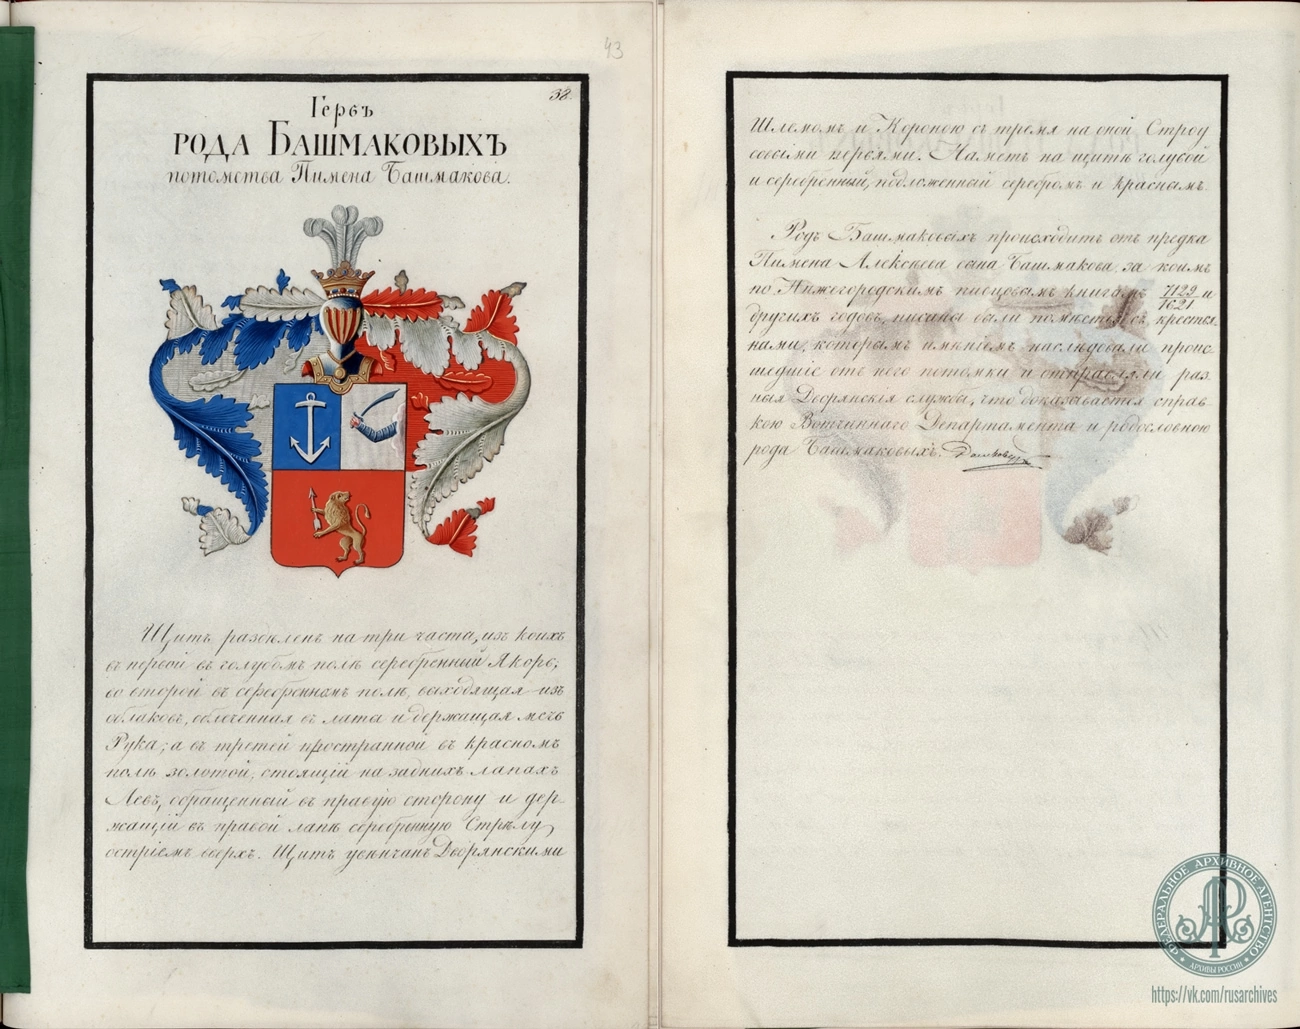 43
38.
Гербъ
РОДА БАШМАКОВЫХЪ
потомства Пимена Башмакова.
Щитъ раздѣленъ на три части, изъ коихъ
въ первой въ голубомъ полѣ серебренный Якорь;
во второй въ серебренномъ полѣ, выходящая изъ
облаковъ, облеченная въ латы и держащая мечь
Рука; а въ третей пространной въ красномъ
полѣ золотой, стоящій на заднихъ лапахъ
Левъ, обращенный въ правую сторону и дер-
жащій въ правой лапѣ серебренную Стрѣлу,
остріемъ вверхъ. Щитъ увѣнчанъ Дворянскими
Шлемомъ и Короною съ тремя на оной Строу
совыми перьями. Наметъ на щитѣ голубой
и серебренный, подложенный серебромъ и краснымъ.
Родъ Башмаковыхъ происходитъ отъ предка
Пимена Алексѣева сына Башмакова, за коимъ
по Нижегородскимъ писцовымъ книгамъ 7129/1621 и
другихъ годовъ, писаны были помѣстья съ крестья
нами, которымъ имѣніемъ наслѣдовали проис-
шедшіе отъ него потомки и отправляли раз
ныя Дворянскія службы, что доказывается справ-
кою Вотчиннаго Департамента и родословною
рода Башмаковыхъ.
ФЕДЕРАЛЬНОЕ АРХИВНОЕ АГЕНТСТВО
АРХИВЫ РОССИИ
https://vk.com/rusarchives